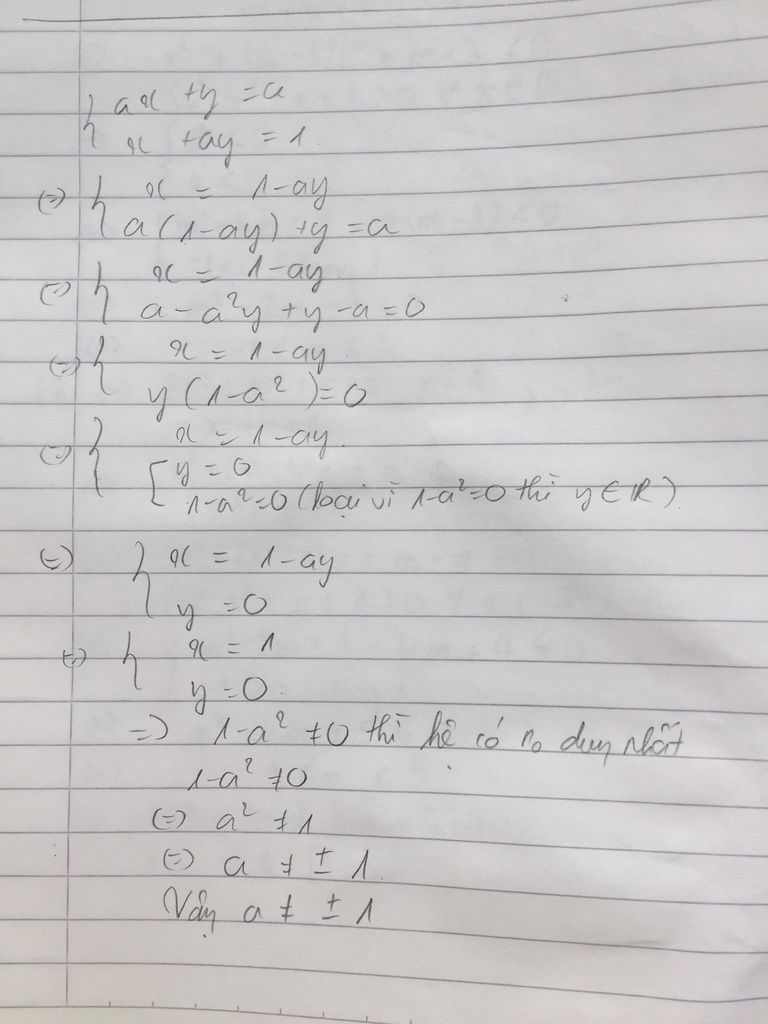 { ax + y = a
x + ay = 1
(=) { x = 1 - ay
a (1 - ay) + y = a
(=) { x = 1 - ay
a - a²y + y - a = 0
(=) { x = 1 - ay
y (1 - a²) = 0
(=) { x = 1 - ay.
[ y = 0
1 - a² = 0 (loại vì 1 - a² = 0 thì y ∈ R)
(=) { x = 1 - ay
y = 0
(=) { x = 1
y = 0.
=) 1 - a² ≠ 0 thì hệ có no duy nhất
1 - a² ≠ 0
(=) a² ≠ 1
(=) a ≠ ± 1
Vậy a ≠ ± 1